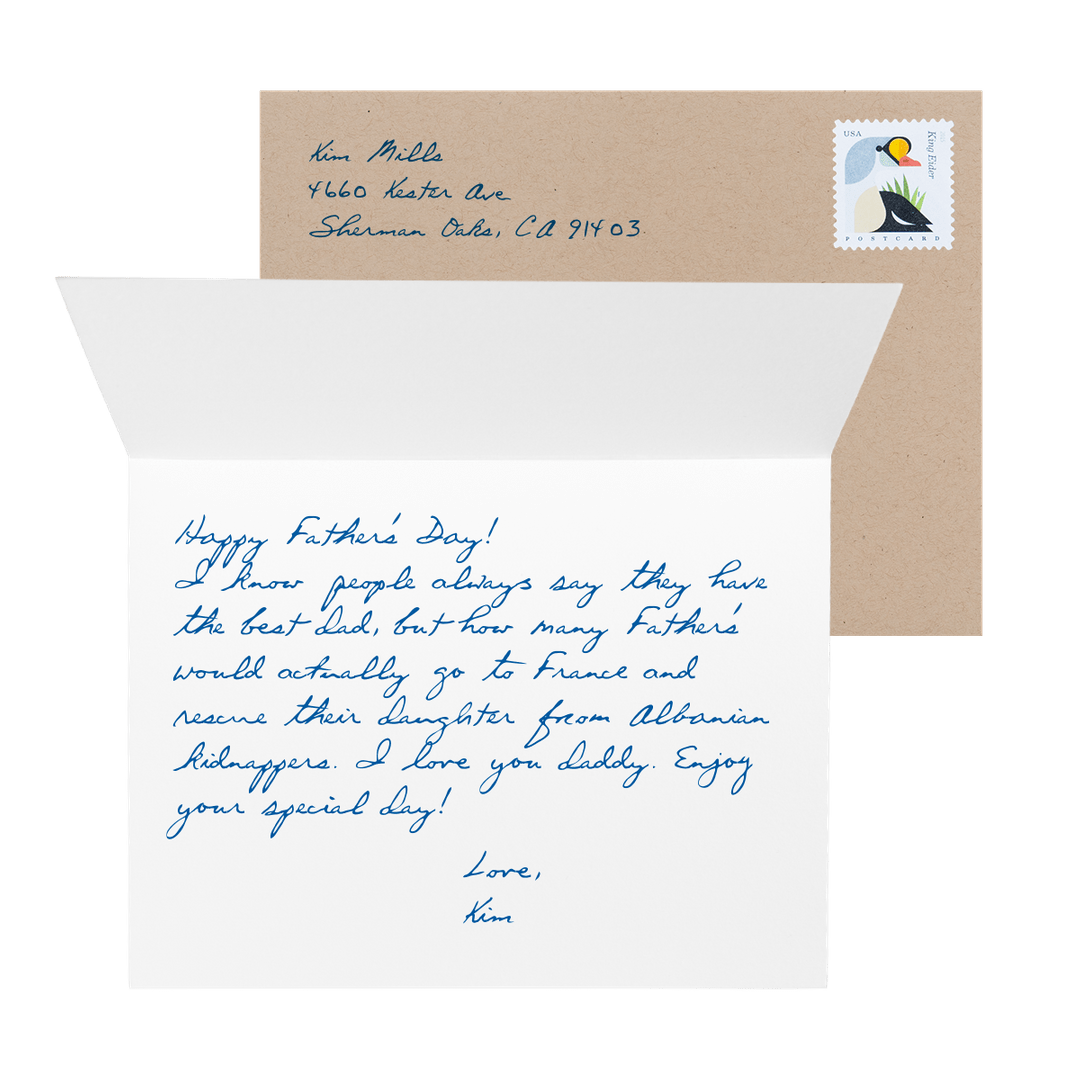 Kim Mills
4660 Kester Ave
Sherman Oaks, CA 91403
USA
King Eider
POSTCARD
Happy Father's Day!
I know people always say they have
the best dad, but how many Father's
would actually go to France and
rescue their daughter from Albanian
kidnappers. I love you daddy. Enjoy
your special day!
Love,
Kim